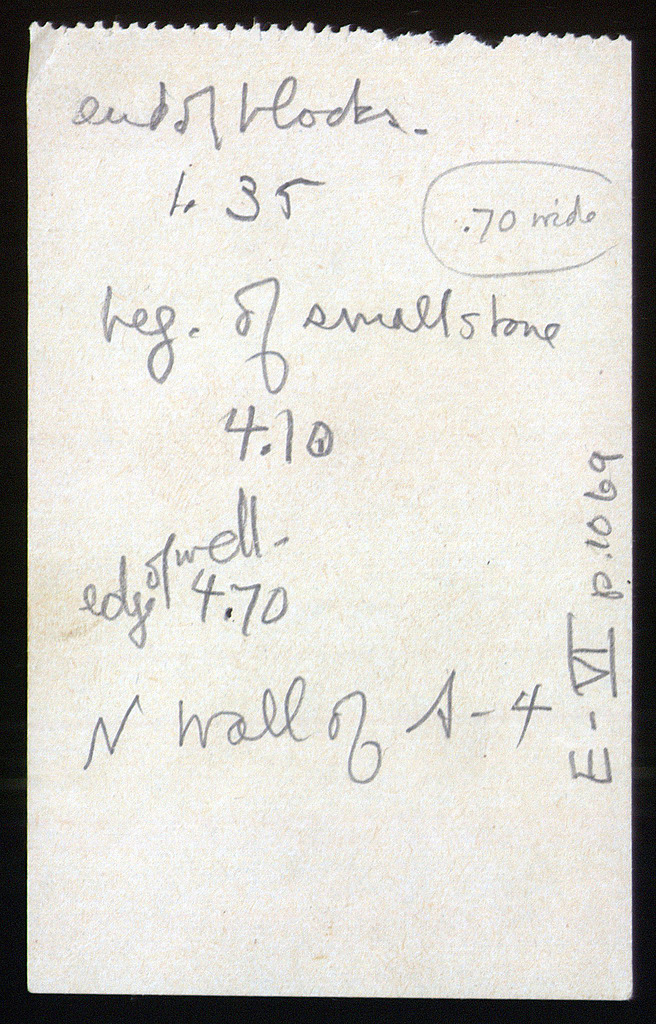 end of blocks.
1.35
.70 wide
beg. of small stone
4.10
edge of well -
4.70
N wall of A-4
E-VI p.1069